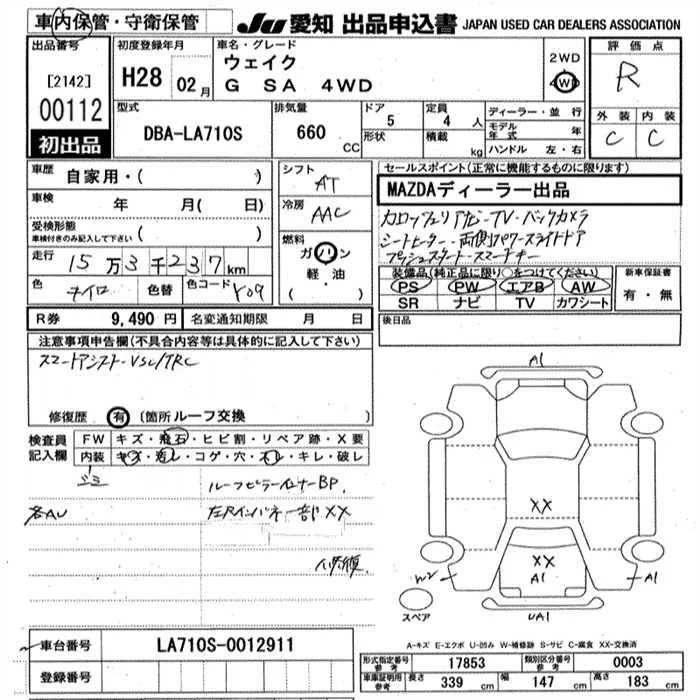 車内保管・守衛保管 JU 愛知 出品申込書 JAPAN USED CAR DEALERS ASSOCIATION
出品番号 初度登録年月 車名・グレード 評価点
[2142] H28 02月 ウェイク 2WD R
00112 G SA 4WD 4WD
初出品 型式 排気量 ドア 定員 ディーラー・並行 外装 内装
DBA-LA710S 660CC 5 4人 モデル年式 年 C C
形状 積載 kg ハンドル 左・右
車歴 自家用・( ) シフト AT セールスポイント(正常に機能するものに限ります)
車検 年 月(日) 冷房 AAC MAZDAディーラー出品
受検形態 カロッツェリアナビ-TV-バックカメラ
車検付きのみ記入して下さい ( ) 燃料 シートヒーター-両側パワースライドドア
走行 15万3千237km ガソリン プッシュスタート-スマートキー
軽・油
色 色替 色コード Y09 (・) 装備品(純正品に限り○をつけてください) 新車保証書
PS PW エアB AW 有・無
SR ナビ TV カワシート
R券 9,490円 名変通知期限 月 日 後日品
注意事項申告欄(不具合内容等は具体的に記入して下さい)
スマートアシスト-VSC/TRC
修復歴 有 (箇所 ルーフ交換
検査員記入欄 FW キズ・飛石・ヒビ割・リペア跡・X要
内装 キズ・汚レ・コゲ・穴・スレ・キレ・破レ
ルーフピラーインナーBP,
各AU 左Rインパネ一部XX
A1
XX
XX
A1
W2 A1
スペア UA1
A-キズ E-エクボ U-凹み W-補修跡 S-サビ C-腐食 XX-交換済
車台番号 LA710S-0012911
登録番号
形式指定番号 参考 17853 類別区分番号 参考 0003
車庫証明用 参考 長さ 339cm 幅 147cm 高さ 183cm